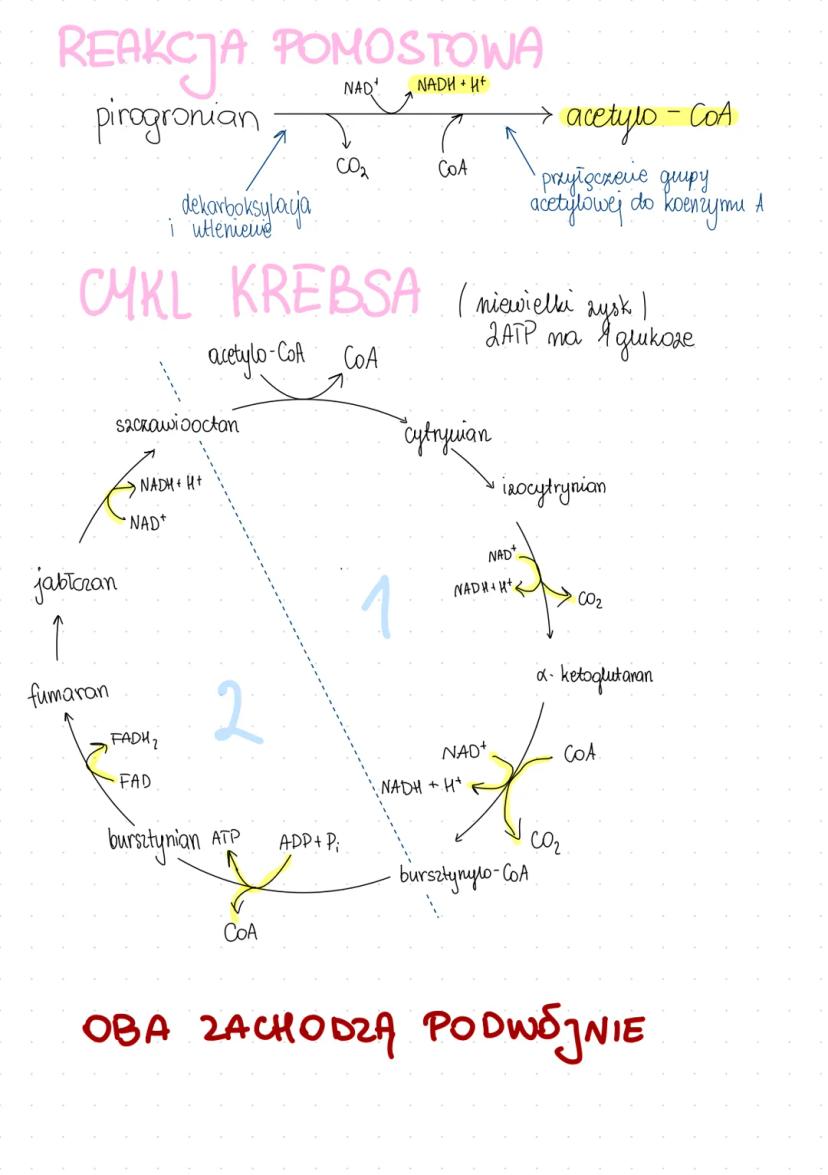 REAKCJA POMOSTOWA
NAD⁺ NADH + H⁺
pirogronian acetylo - CoA
CO₂ CoA
dekarboksylacja
i utlenienie
przyłączenie grupy
acetylowej do koenzymu A
CYKL KREBSA
(niewielki zysk)
2ATP na 1 glukozę
acetylo-CoA CoA
szczawiooctan
cytrynian
izocytrynian
NADH + H⁺
NAD⁺
NAD⁺
NADH + H⁺
CO₂
jabłczan
1
α- ketoglutaran
fumaran
2
FADH₂
FAD
NAD⁺ CoA
NADH + H⁺
CO₂
bursztynian ATP ADP + Pᵢ
bursztynylo-CoA
CoA
OBA ZACHODZĄ PODWÓJNIE